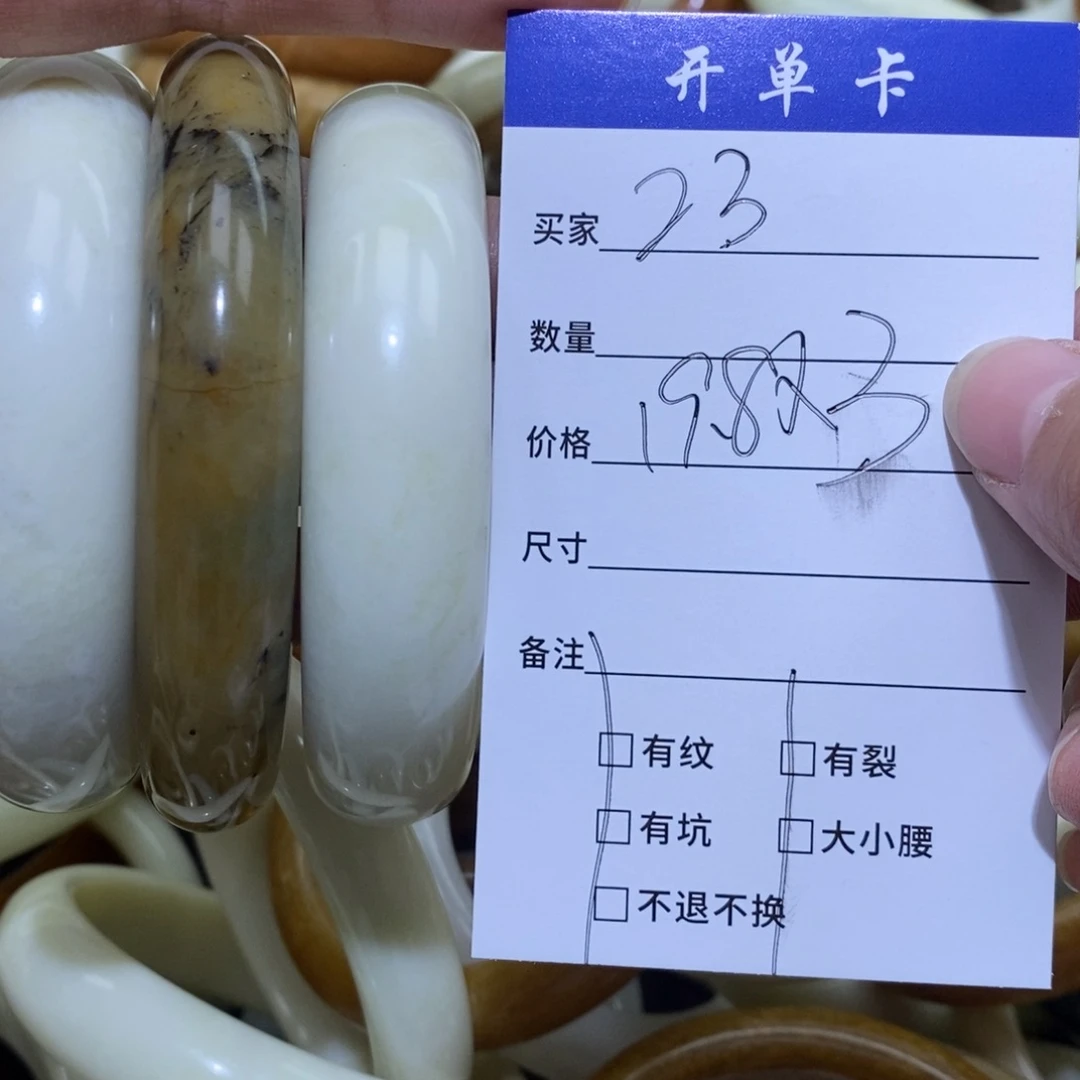 开单卡
买家 23
数量
价格 198
尺寸
备注
有纹 有裂
有坑 大小腰
不退不换